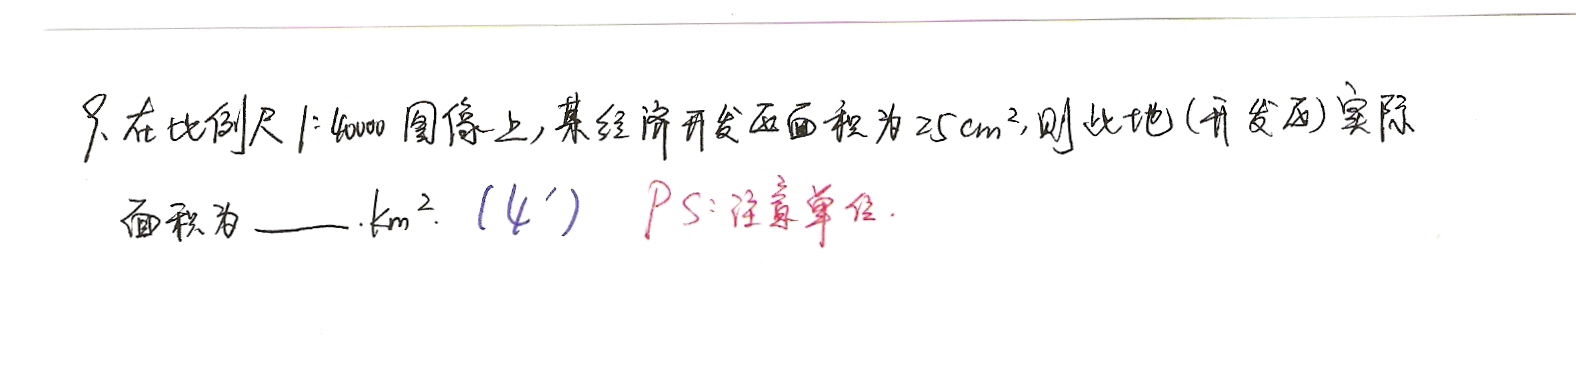 9、在比例尺1:40000图像上,某经济开发区面积为25cm²,则此地(开发区)实际
面积为____.km². (4′) PS:注意单位.